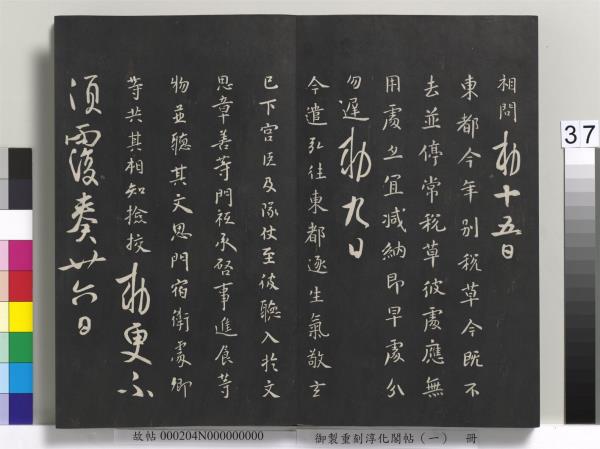 相問勅十五日
東都今年别税草今既不
去並停常税草彼處應無
用處五宜減納即早處分
勿遲勅九日
今遣弘往東都逐生氣敬玄
已下宫臣及隊仗至彼聽入於文
思章善等門祗承啓事進食等
物並聽其文思門宿衛處卿
等共其相知撿挍勅更不
須覆奏廿六日
37
故帖 000204N000000000
御製重刻淳化閣帖（一） 冊